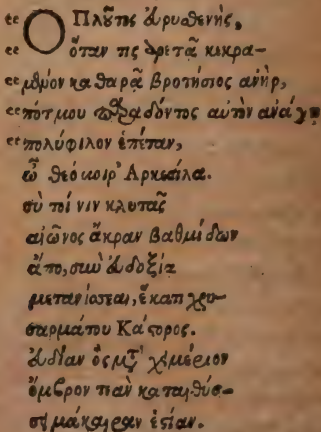 “ Ὁ Πλοῦτος εὐρυσθενὴς,
“ ὅταν τις ἀρετᾷ κεκρα-
“ μένον καθαρᾷ βροτήσιος ἀνὴρ,
“ πότμου παραδόντος αὐτὸν ἀνάγῃ
“ πολύφιλον ἑπέταν,
ὦ θεόμοιρ' Ἀρκεσίλα.
σύ τοί νιν κλυτᾶς
αἰῶνος ἄκραν βαθμίδων
ἄπο, σὺν εὐδοξίᾳ
μετανίσεαι, ἕκατι χρυ-
σαρμάτου Κάστορος.
εὐδίαν ὃς μετὰ χειμέριον
ὄμβρον τεὰν καταιθύσ-
σει μάκαιραν ἑστίαν.